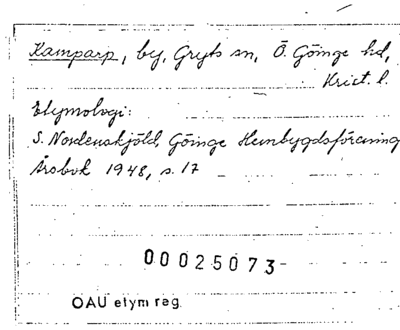 Kamparp, by, Gryts sn, Ö. Göinge hd,
Krist. l.
Etymologi:
S. Nordenskjöld, Göinge Hembygdsförening
Årsbok 1948, s. 17
00025073-
OAU etym reg.